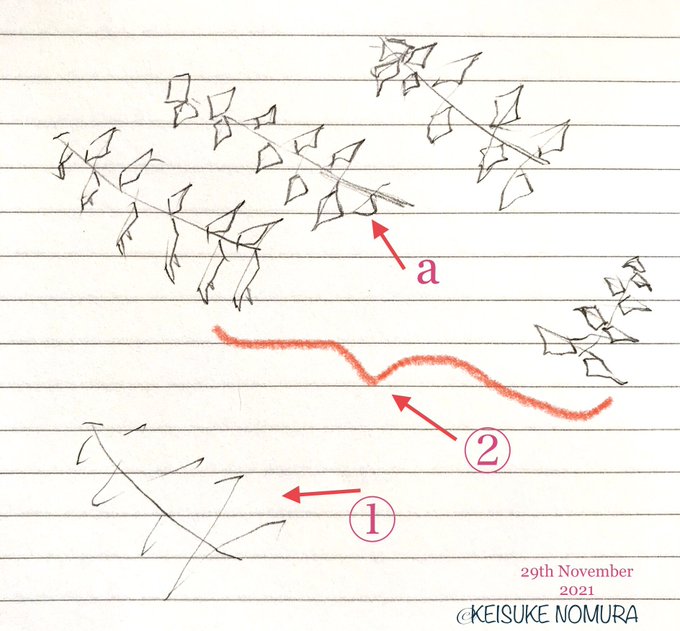 a
②
①
29th November
2021
©KEISUKE NOMURA